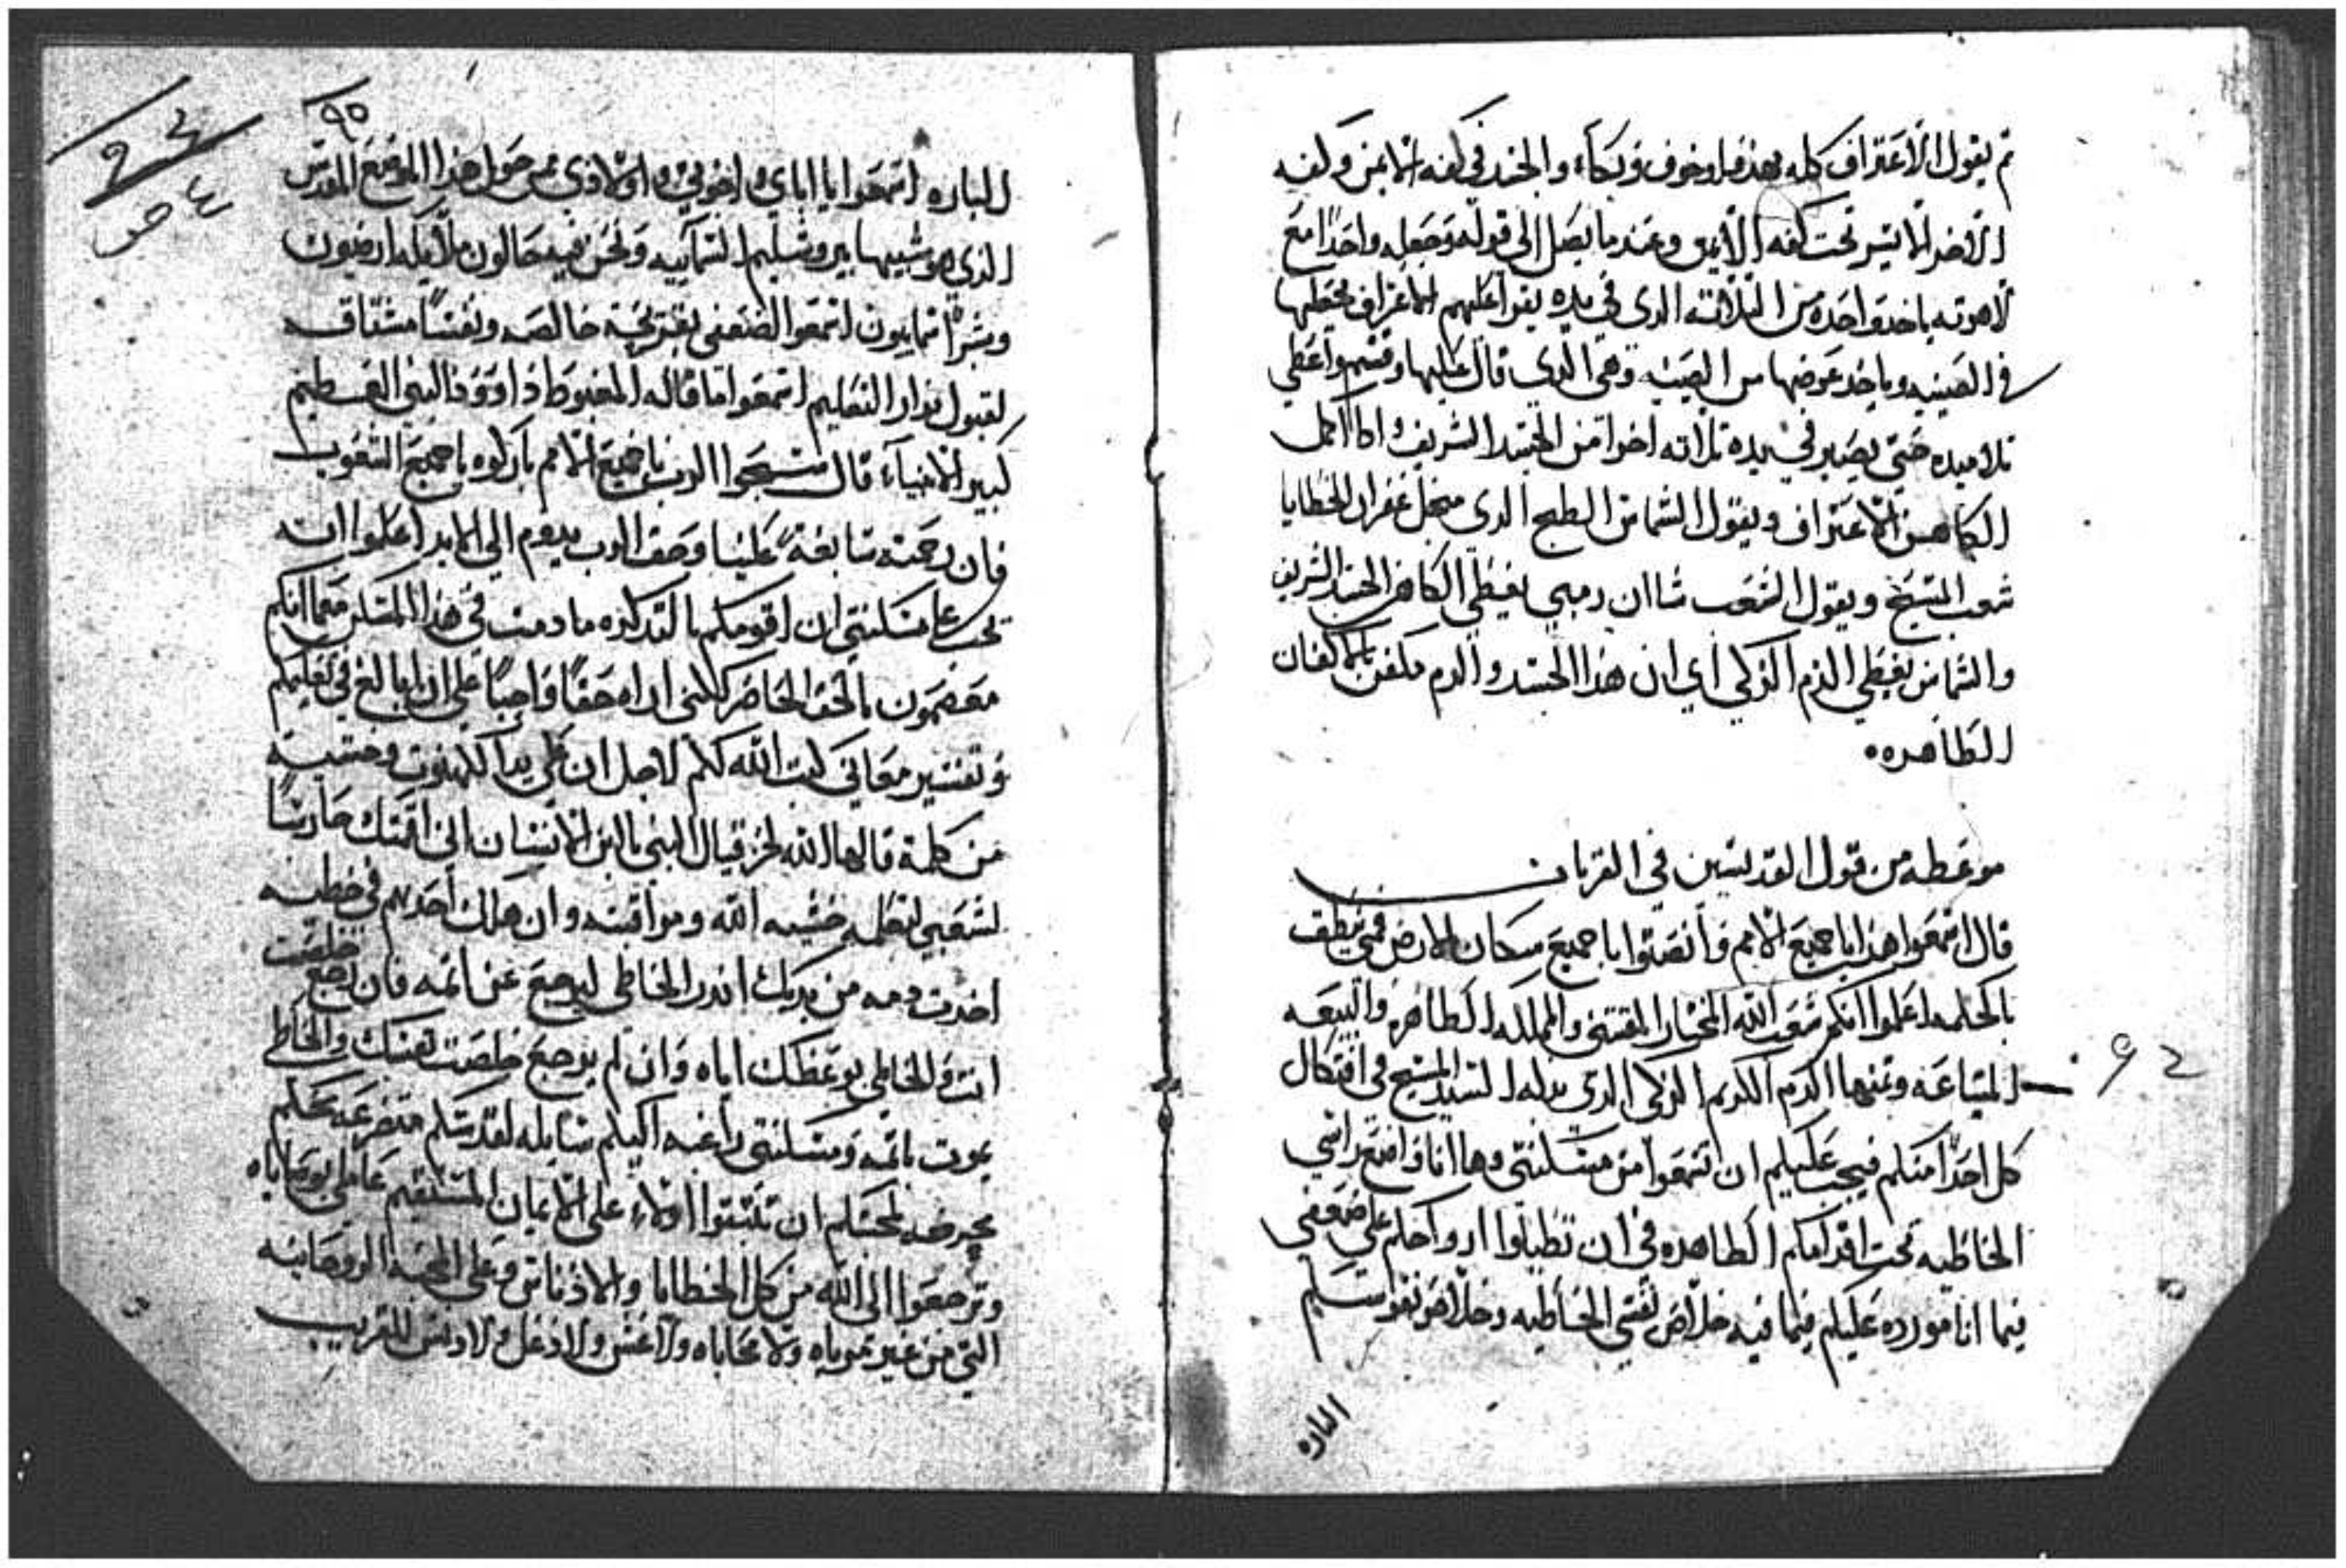 ثم يقول الاعتراف كله بهدوا وخوف وبكاء والجسد في كفه الايمن وكفه
الاخر الايسر تحت كفه الايمن وعند ما يصل الى قوله وجعله واحدا مع
لاهوته ياخد واحده من التلاته الدي في يده يقرا عليهم الاعتراف يجعلها
في الصينيه وياخد عوضها من الصينيه وهي الدي قال عليها وقسمه واعطي
تلاميده حتي يصير في يده تلاته اخرا من الجسد الشريف وادا اكمل
الكاهن الاعتراف ويقول الشماس الطبح الدي من غفران الخطايا
شعب المسيح ويقول الشعب شاان رمبي يغطي الكاهن الجسد الشريف
والشماس يغطي الدم الزكي اي ان هذا الجسد والدم ملفن بالاكفان
الطاهره
موعظه من قول القديسين في القربان
قال اسمعوا هذا يا جميع الامم وانصتوا يا جميع سكان الارض فمي ينطق
بالحكمه اعلموا انكم شعب الله المختار المقتني والمملكه الطاهره والبيعه
المبتاعه وتمنها الدم الكريم الزكي الدي بدله السيد المسيح في افتكاك
كل احدا منكم فيجب عليكم ان تسمعوا من مسكنتي وها انا واضع راسي
الخاطيه تحت اقدامكم الطاهره في ان تطيلوا ارواحكم علي ضعفي
فيما انا مورده عليكم فيما فيه خلاص نفسي الخاطيه وخلاص نفوسكم
الباره
٩٥
الباره اسمعوا يا اباي واخوتي واولادي من حول هذا الموضع المقدس
الدي هو شبيها بيروشليم السمآييه ونحن فيه حالون ملايكه ارضيون
وبشرا سماييون اسمعوا الضعفي بقريحة خالصه ونفسا مشتاقه
لقبول نوار التعليم اسمعوا ما قاله المغبوط داوود النبي العظيم
كبير الانبياء قال سبحوا الرب يا جميع الامم باركوه يا جميع الشعوب
فان رحمته سابغة علينا وحق الرب يدوم الي الابد اعلموا انه
يجب علي مسكنتي ان اقومكم بالتدكره ما دمت في هذا المسكن معما انكم
معصمون بالحق الحاضر لكنني اراه حقا واجبا علي ان ابالغ في تعليمكم
وتفسير معاني كتب الله لكم لاجل ان علي يدا الكهنوت وخشيه
من كلمة قالها الله لحزقيال النبي يا ابن الانسان اني اقمتك حارسا
لشعبي لتعلمه خشيه الله ومراقبته وان هلك احدهم في خطيه
اخدت دمه من يديك اندر الخاطي ليرجع عن اثمه فان رجع خلصت
انت والخاطي بوعظك اياه وان لم يرجع خلصت نفسك والخاطي
يموت باثمه ومسكنتي راغبه اليكم سايله لقدسكم متضرعه لكم
ان تثبتوا اولاء علي الايمان المستقيم
وترجعوا الى الله من كل الخطايا والادناس وعلي المحبه الروحانيه
التي من غير مرياه ولا محاباه ولا غش ولا دغل ولا دنس للقريب